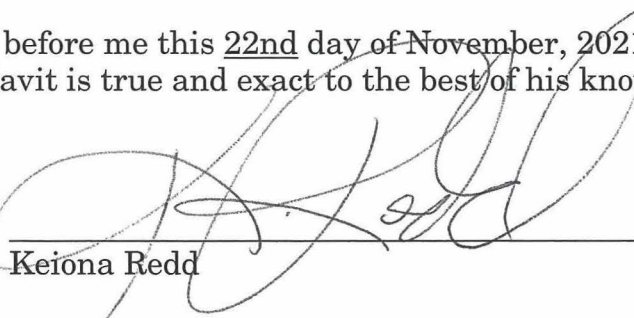 before me this 22nd day of November, 2021
avit is true and exact to the best of his kno
Keiona Redd